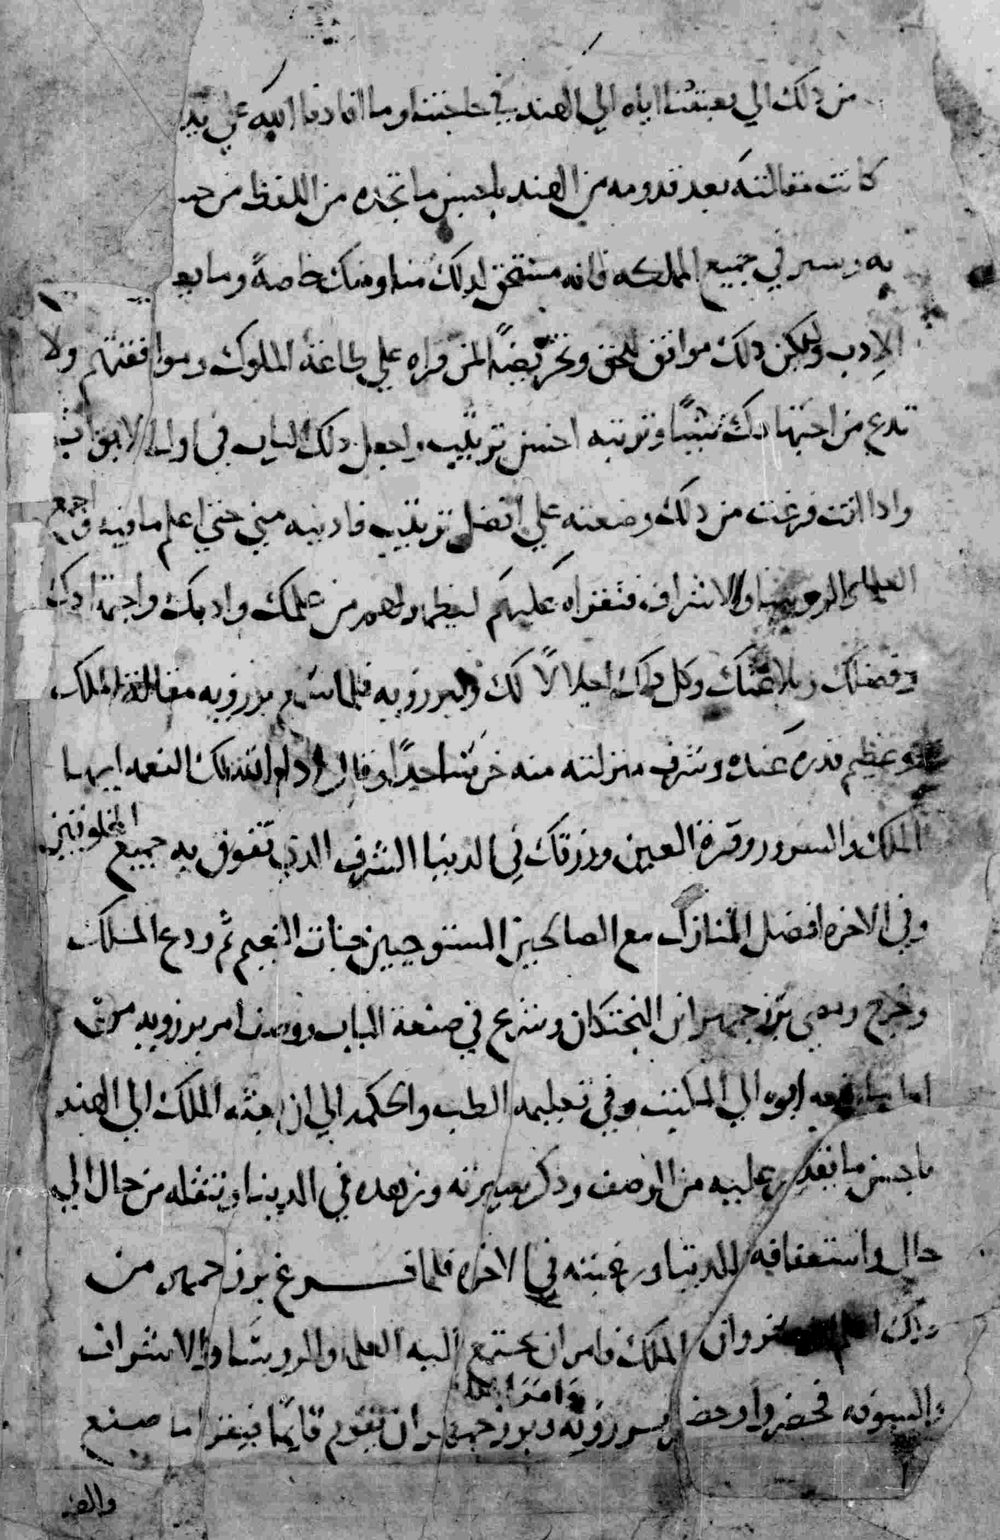 من ذلك الي بعثتنا اياه الي الهند في حاجتنا وما افادنا الله علي يد
كانت مقالته بعد قدومه من الهند باحسن ما تجده من اللفظ من
به وسير في جميع المملكه فانه مستحق لدلك منا ومنك خاصةً وما
الادب وليكن دلك موافق للحق وتحريضًا لمن قراه علي طاعة الملوك وموافقتهم ولا
تدع من اجتهادك شيًا وترتبه احسن ترتيب واجعل دلك الباب في اول الابواب
وادا انت فرغت من دلك وضعته علي افضل ترتيب فادنيه مني حتي اعلم ما فيه واجمع
العلما والروسا والاشراف فتقراه عليهم ليظهر لهم من علمك وادبك واجتهادك
وفضلك وبلاغتك وكل داك اجلالاً لك ولبرزويه فلما سمع برزويه مقالة الملك
وعظيم قدره عنده وشرف منزلته منه خر ساجدًا وقال ادام الله لك النعمه ايها
الملك والسرور وقرة العين ورزقك في الدنيا الشرف الدي تفوق به جميع المخلوقين
وفي الاخره افضل المنازل مع الصالحين المستوجبين جنات النعيم ثم ودع الملك
وخرج وبقي بزرجمهر ابن البختكان وشرع في صنعة الباب ووصف امر برزويه من
ابوه الي المكتب وفي تعليمه الطب والحكمه الي ان بعثه الملك الي الهند
باحسن ما يقدر عليه من الوصف ودكر بصيرته وزهده في الدنيا وتنقله من حال الي
حال واستعفافه للدنيا ورغبته في الاخره فلما فرغ بزرجمهر من
دلك الملك فامر ان يجتمع اليه العلما والروسا والاشراف
والسوقه فحضروا وحضر برزويه وبزرجمهر وامر ان يقوم قايمًا فيقرا ما صنع